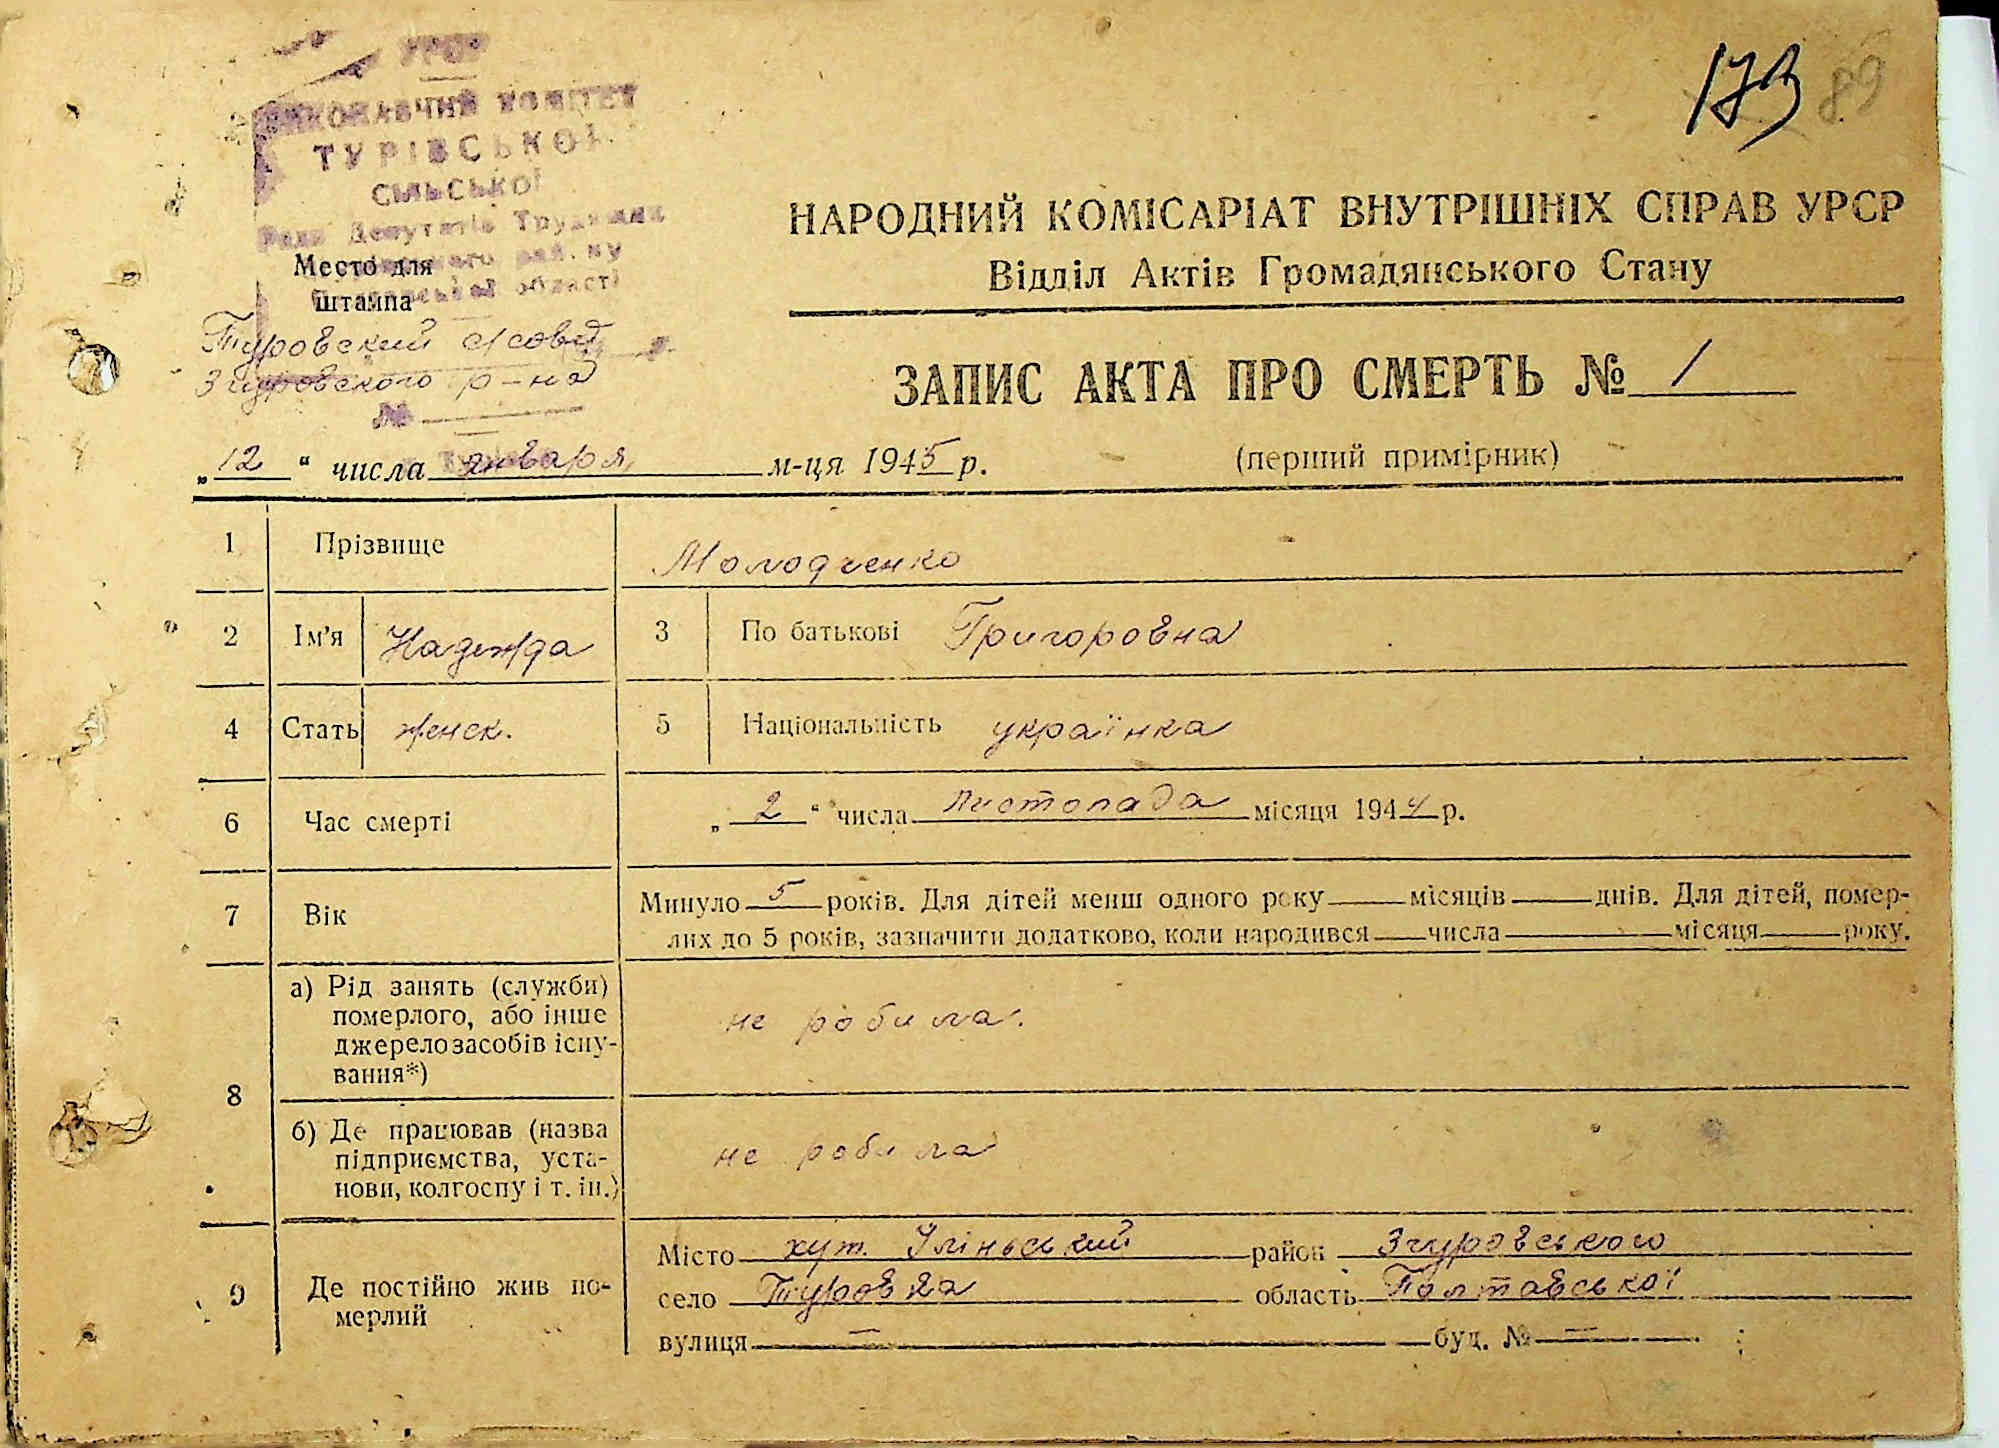 УРСР
ВИКОНАВЧИЙ КОМІТЕТ
ТУРІВСЬКОЇ
СІЛЬСЬКОЇ
Ради Депутатів Трудящих
району
області
Место для
штампа
Туровский с/совет
Згуровского р-на
№
173 89
НАРОДНИЙ КОМІСАРІАТ ВНУТРІШНІХ СПРАВ УРСР
Відділ Актів Громадянського Стану
ЗАПИС АКТА ПРО СМЕРТЬ № 1
„12“ числа января м-ця 1945 р.
(перший примірник)
1 Прізвище Молодченко
2 Ім'я Надежда 3 По батькові Григоровна
4 Стать женск. 5 Національність українка
6 Час смерті „2“ числа Листопада місяця 1944 р.
7 Вік Минуло 5 років. Для дітей менш одного року місяців днів. Для дітей, помер-
лих до 5 років, зазначити додатково, коли народився числа місяця року.
8 а) Рід занять (служби)
померлого, або інше
джерело засобів існу-
вання*)
не робила.
б) Де працював (назва
підприємства, уста-
нови, колгоспу і т. ін.)
не робила
9 Де постійно жив по-
мерлий
Місто хут. район Згуровського
село Туровка область Полтавської
вулиця — буд. № —